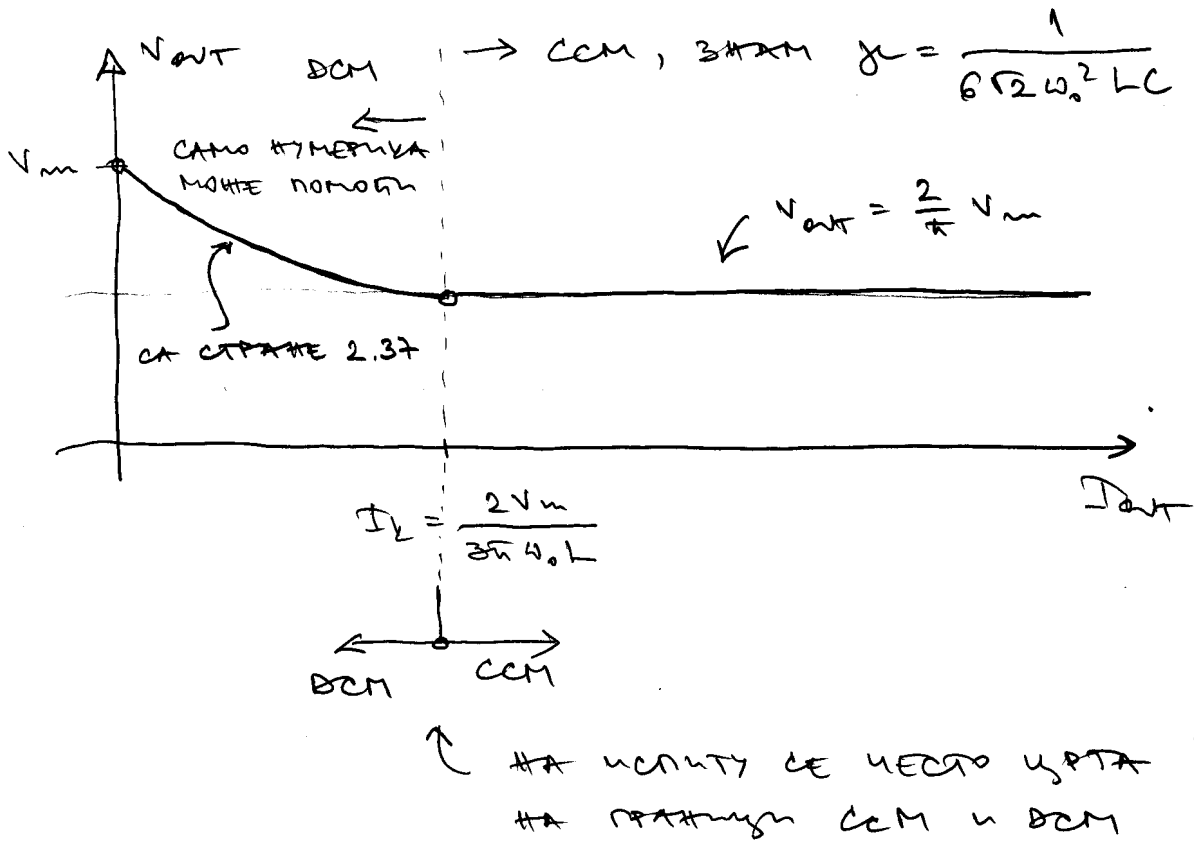 V_OUT
DCM
→ CCM, ЗНАМ γ = 1 / (6√2 ω₀² LC)
←
САМО НУМЕРИКА
МОЖЕ ПОМОЋИ
V_m
V_OUT = 2/π V_m
СА СТРАНЕ 2.37
I_OUT
I_k = 2V_m / (3π ω₀ L)
DCM CCM
НА ИСПИТУ СЕ ЧЕСТО ЦРТА
НА ГРАНИЦИ CCM И DCM